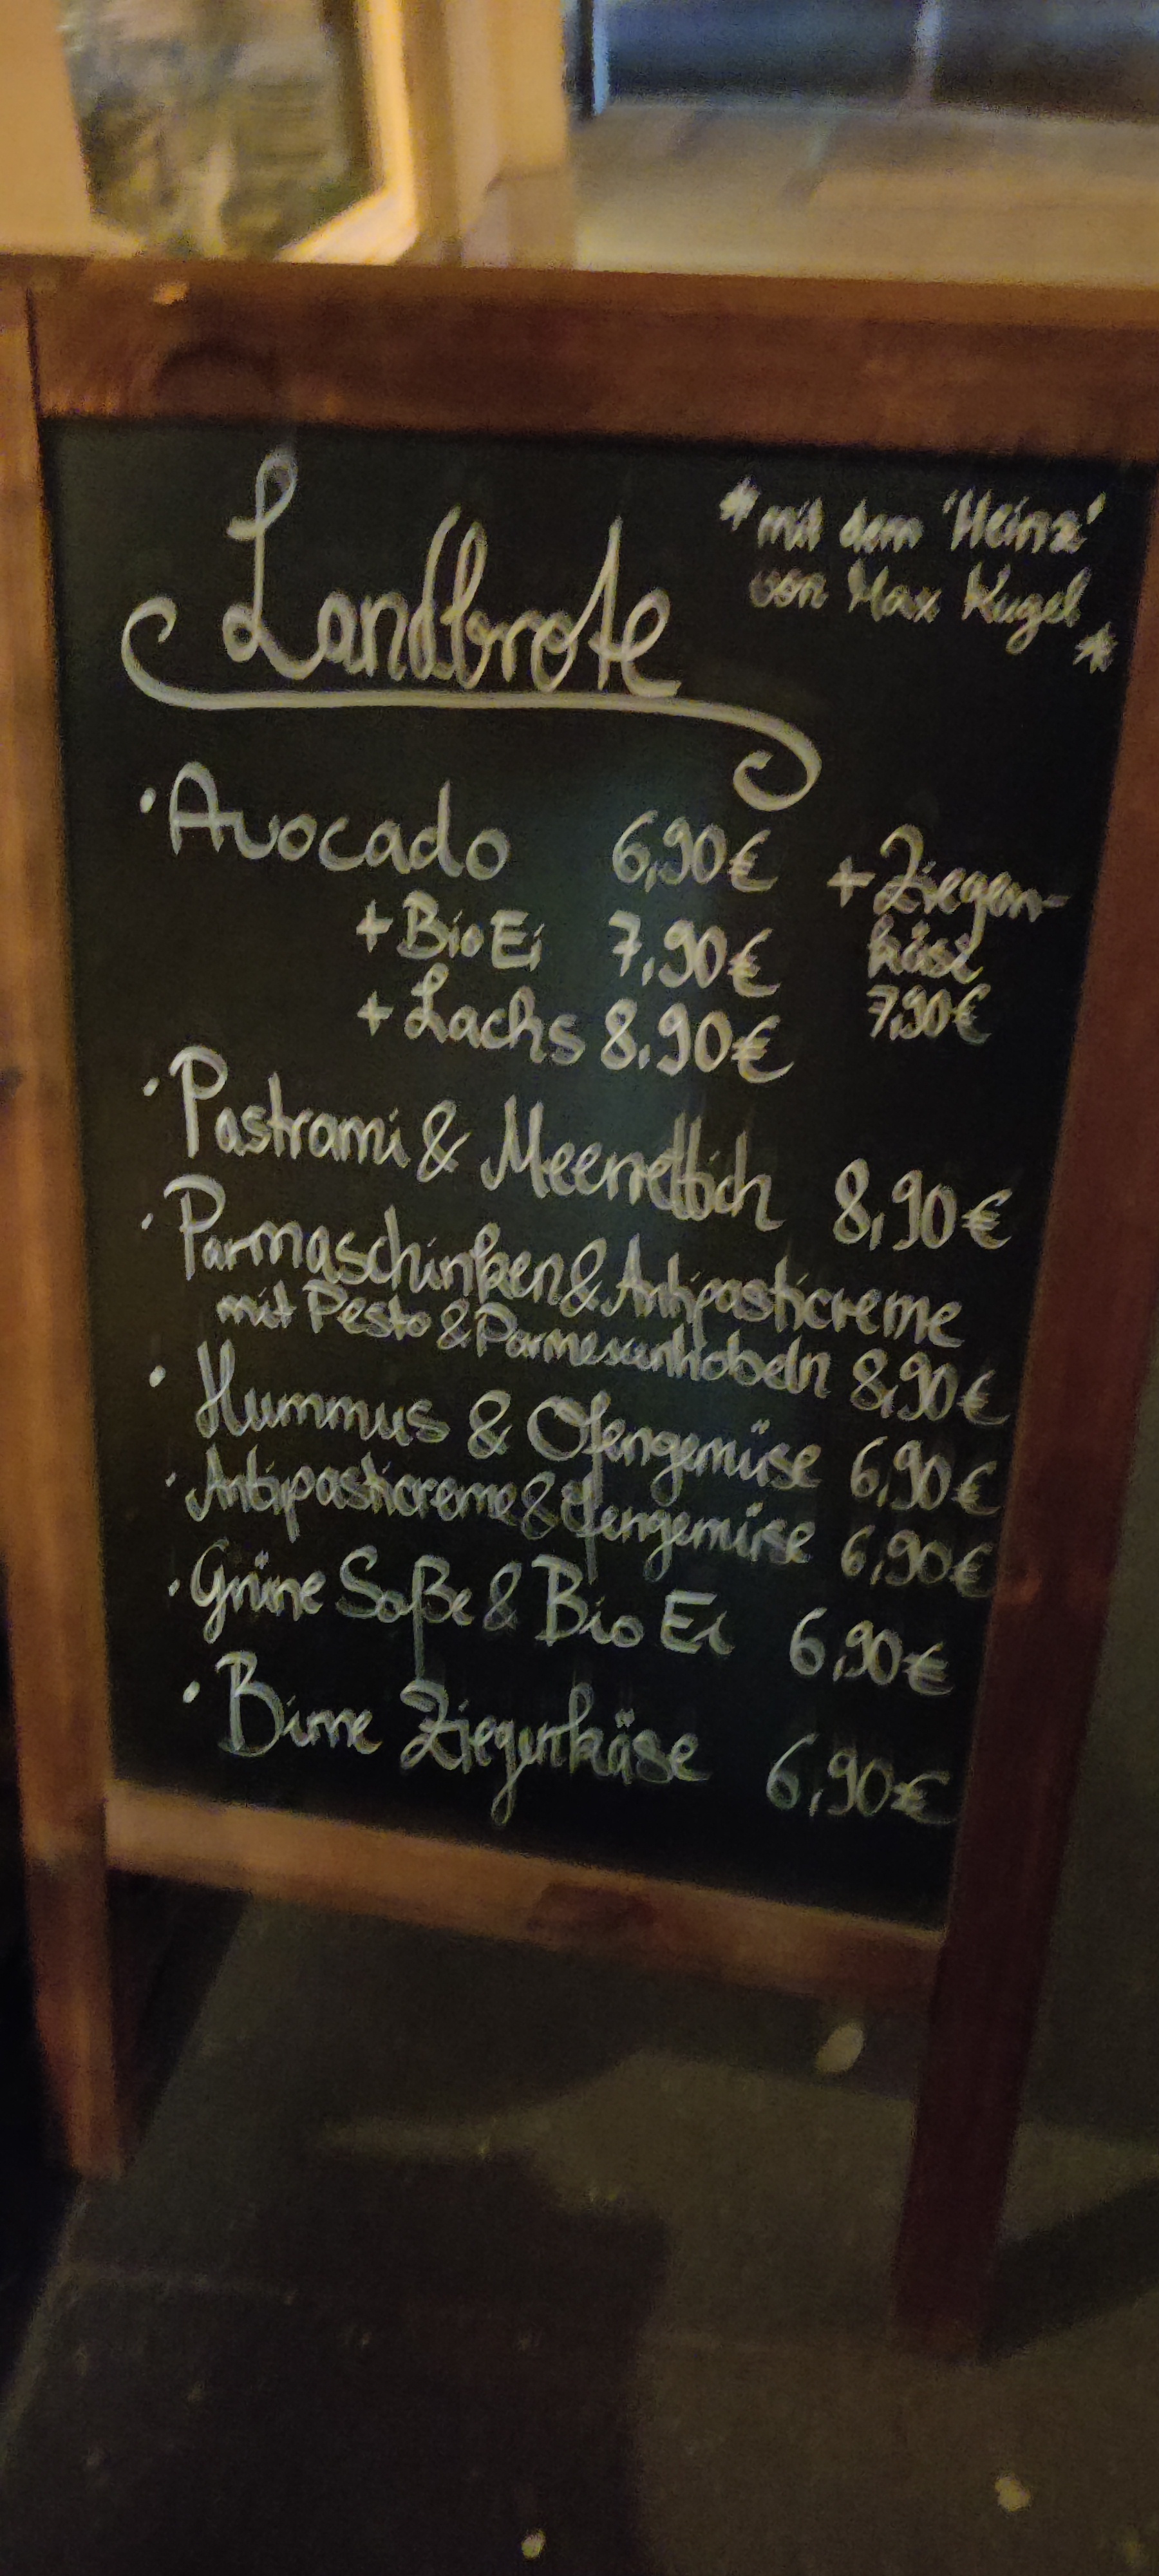 Landbrote
*mit dem 'Heinz'
von Max Kugel
*
· Avocado 6,90€
+ Bio Ei 7,90€
+ Lachs 8,90€
+ Ziegen-
käse
7,90€
· Pastrami & Meerrettich 8,90€
· Parmaschinken & Antipasticreme
mit Pesto & Parmesanhobeln 8,90€
· Hummus & Ofengemüse 6,90€
· Antipasticreme & Ofengemüse 6,90€
· Grüne Soße & Bio Ei 6,90€
· Birne Ziegenkäse 6,90€